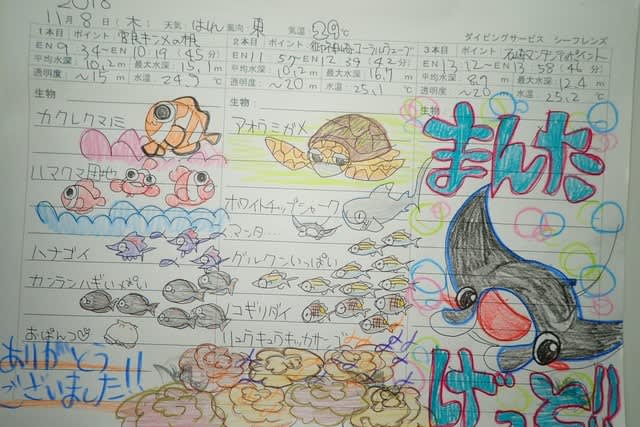 2018
11月8日(木) 天気:はれ 風向:東 気温 29℃
ダイビングサービス シーフレンズ
1本目 ポイント:
EN 9 34~EX 10 19 (45分)
平均水深: 10.2m 最大水深 15.1m
透明度: ~15m 水温: 24.9℃
2本目 ポイント:
EN 11 57~EX 12 39 (42分)
平均水深: 10.2m 最大水深 16.7m
透明度: ~20m 水温: 25.1℃
3本目 ポイント: 石崎マンタシティポイント
EN 13 12~EX 58 (46分)
平均水深: 8.9m 最大水深 12.4m
透明度: ~20m 水温: 25.2℃
生物
カクレクマノミ
ハマクマ団地
ハナゴイ
カンランハギいっぱい
おぱんつ♡
ありがとう
ございました!!
生物:
アオウミガメ
ホワイトチップシャーク
マンタ…
グルクンいっぱい
ノコギリダイ
リュウキュウキッカサンゴ
生物
まんた
げっと!!